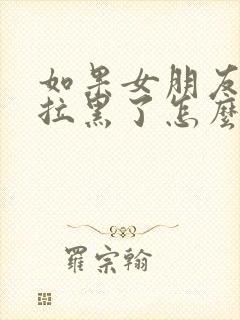 如果女朋友
拉黑了怎麼
羅宗翰